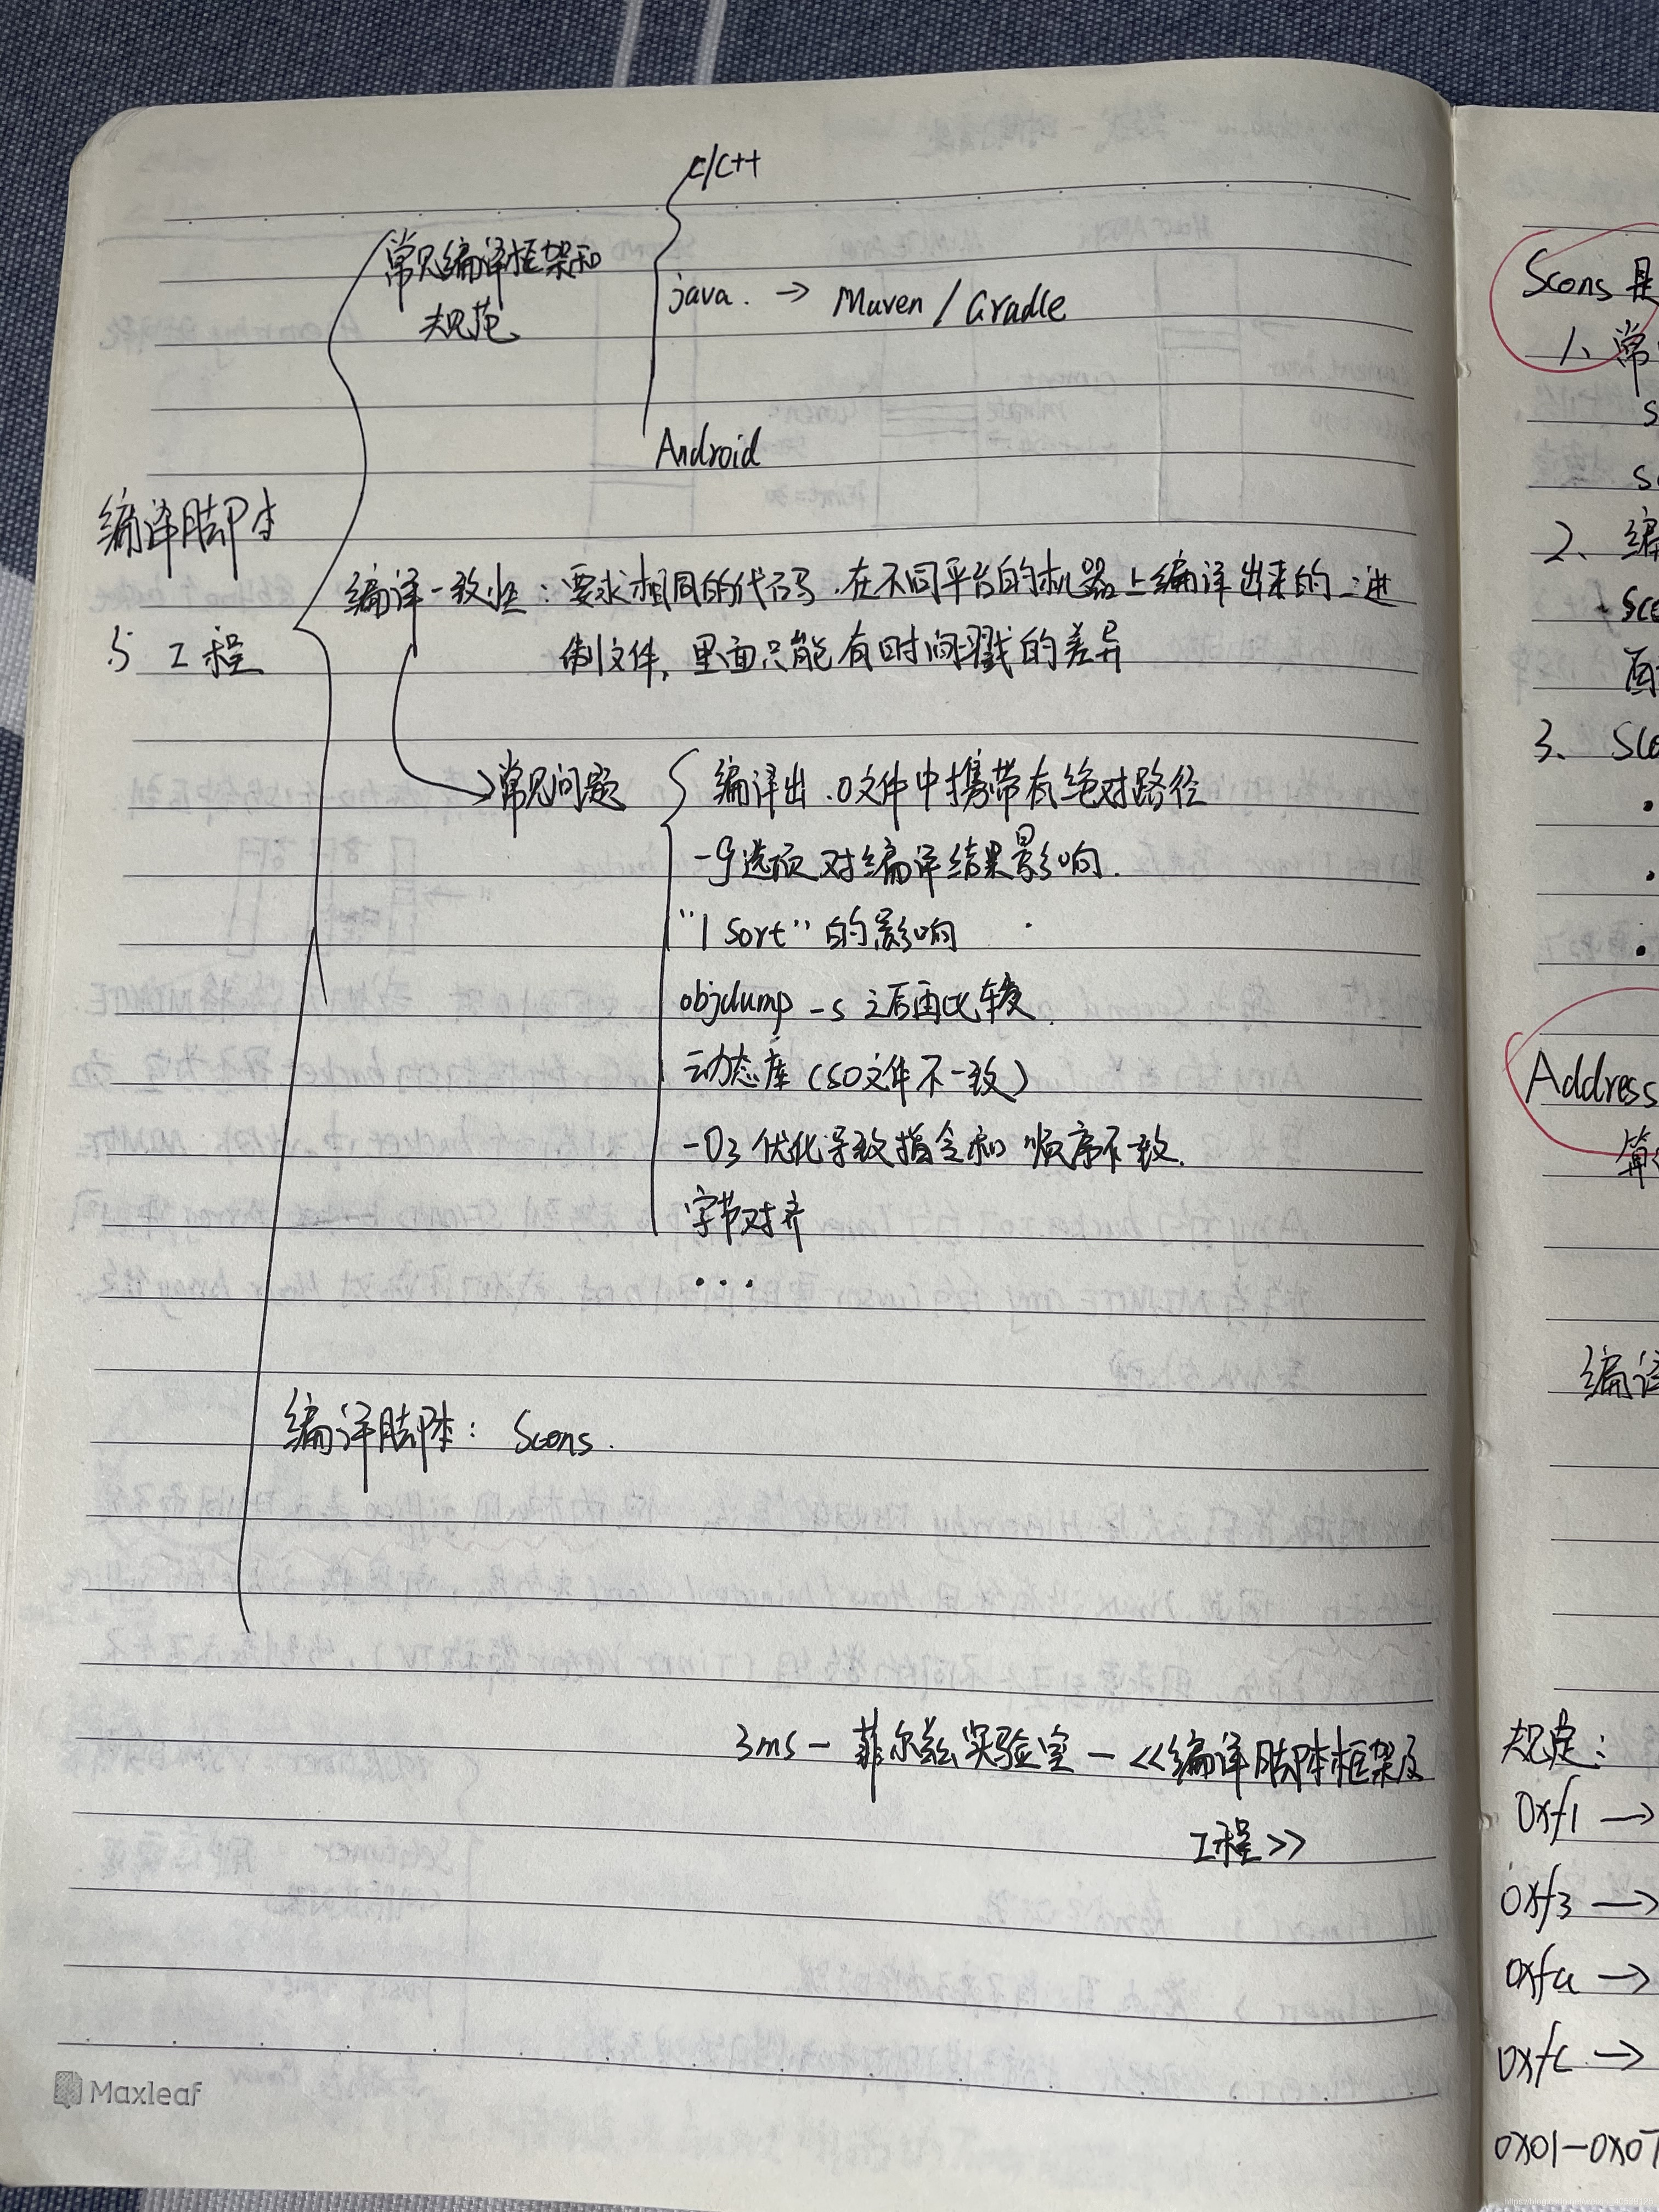 C/C++
常见编译框架和
规范
java. → Maven / Gradle
Android
编译脚本
与工程
编译一致性：要求相同的代码，在不同平台的机器上编译出来的二进
制文件，里面只能有时间戳的差异
常见问题
编译出.o文件中携带有绝对路径
-g选项对编译结果影响.
"| sort"的影响
objdump -s 之后再比较.
动态库（SO文件不一致）
-O3 优化导致指令和顺序不一致.
字节对齐
...
编译脚本：Scons.
3ms - 菲尔兹实验室 - <<编译脚本框架及
工程>>
Maxleaf
Scons 是
1、常
2、编
3、
Address
算
编译
规定：
0xf1 →
0xf3 →
0xfa →
0xfc →
0x01-0x07